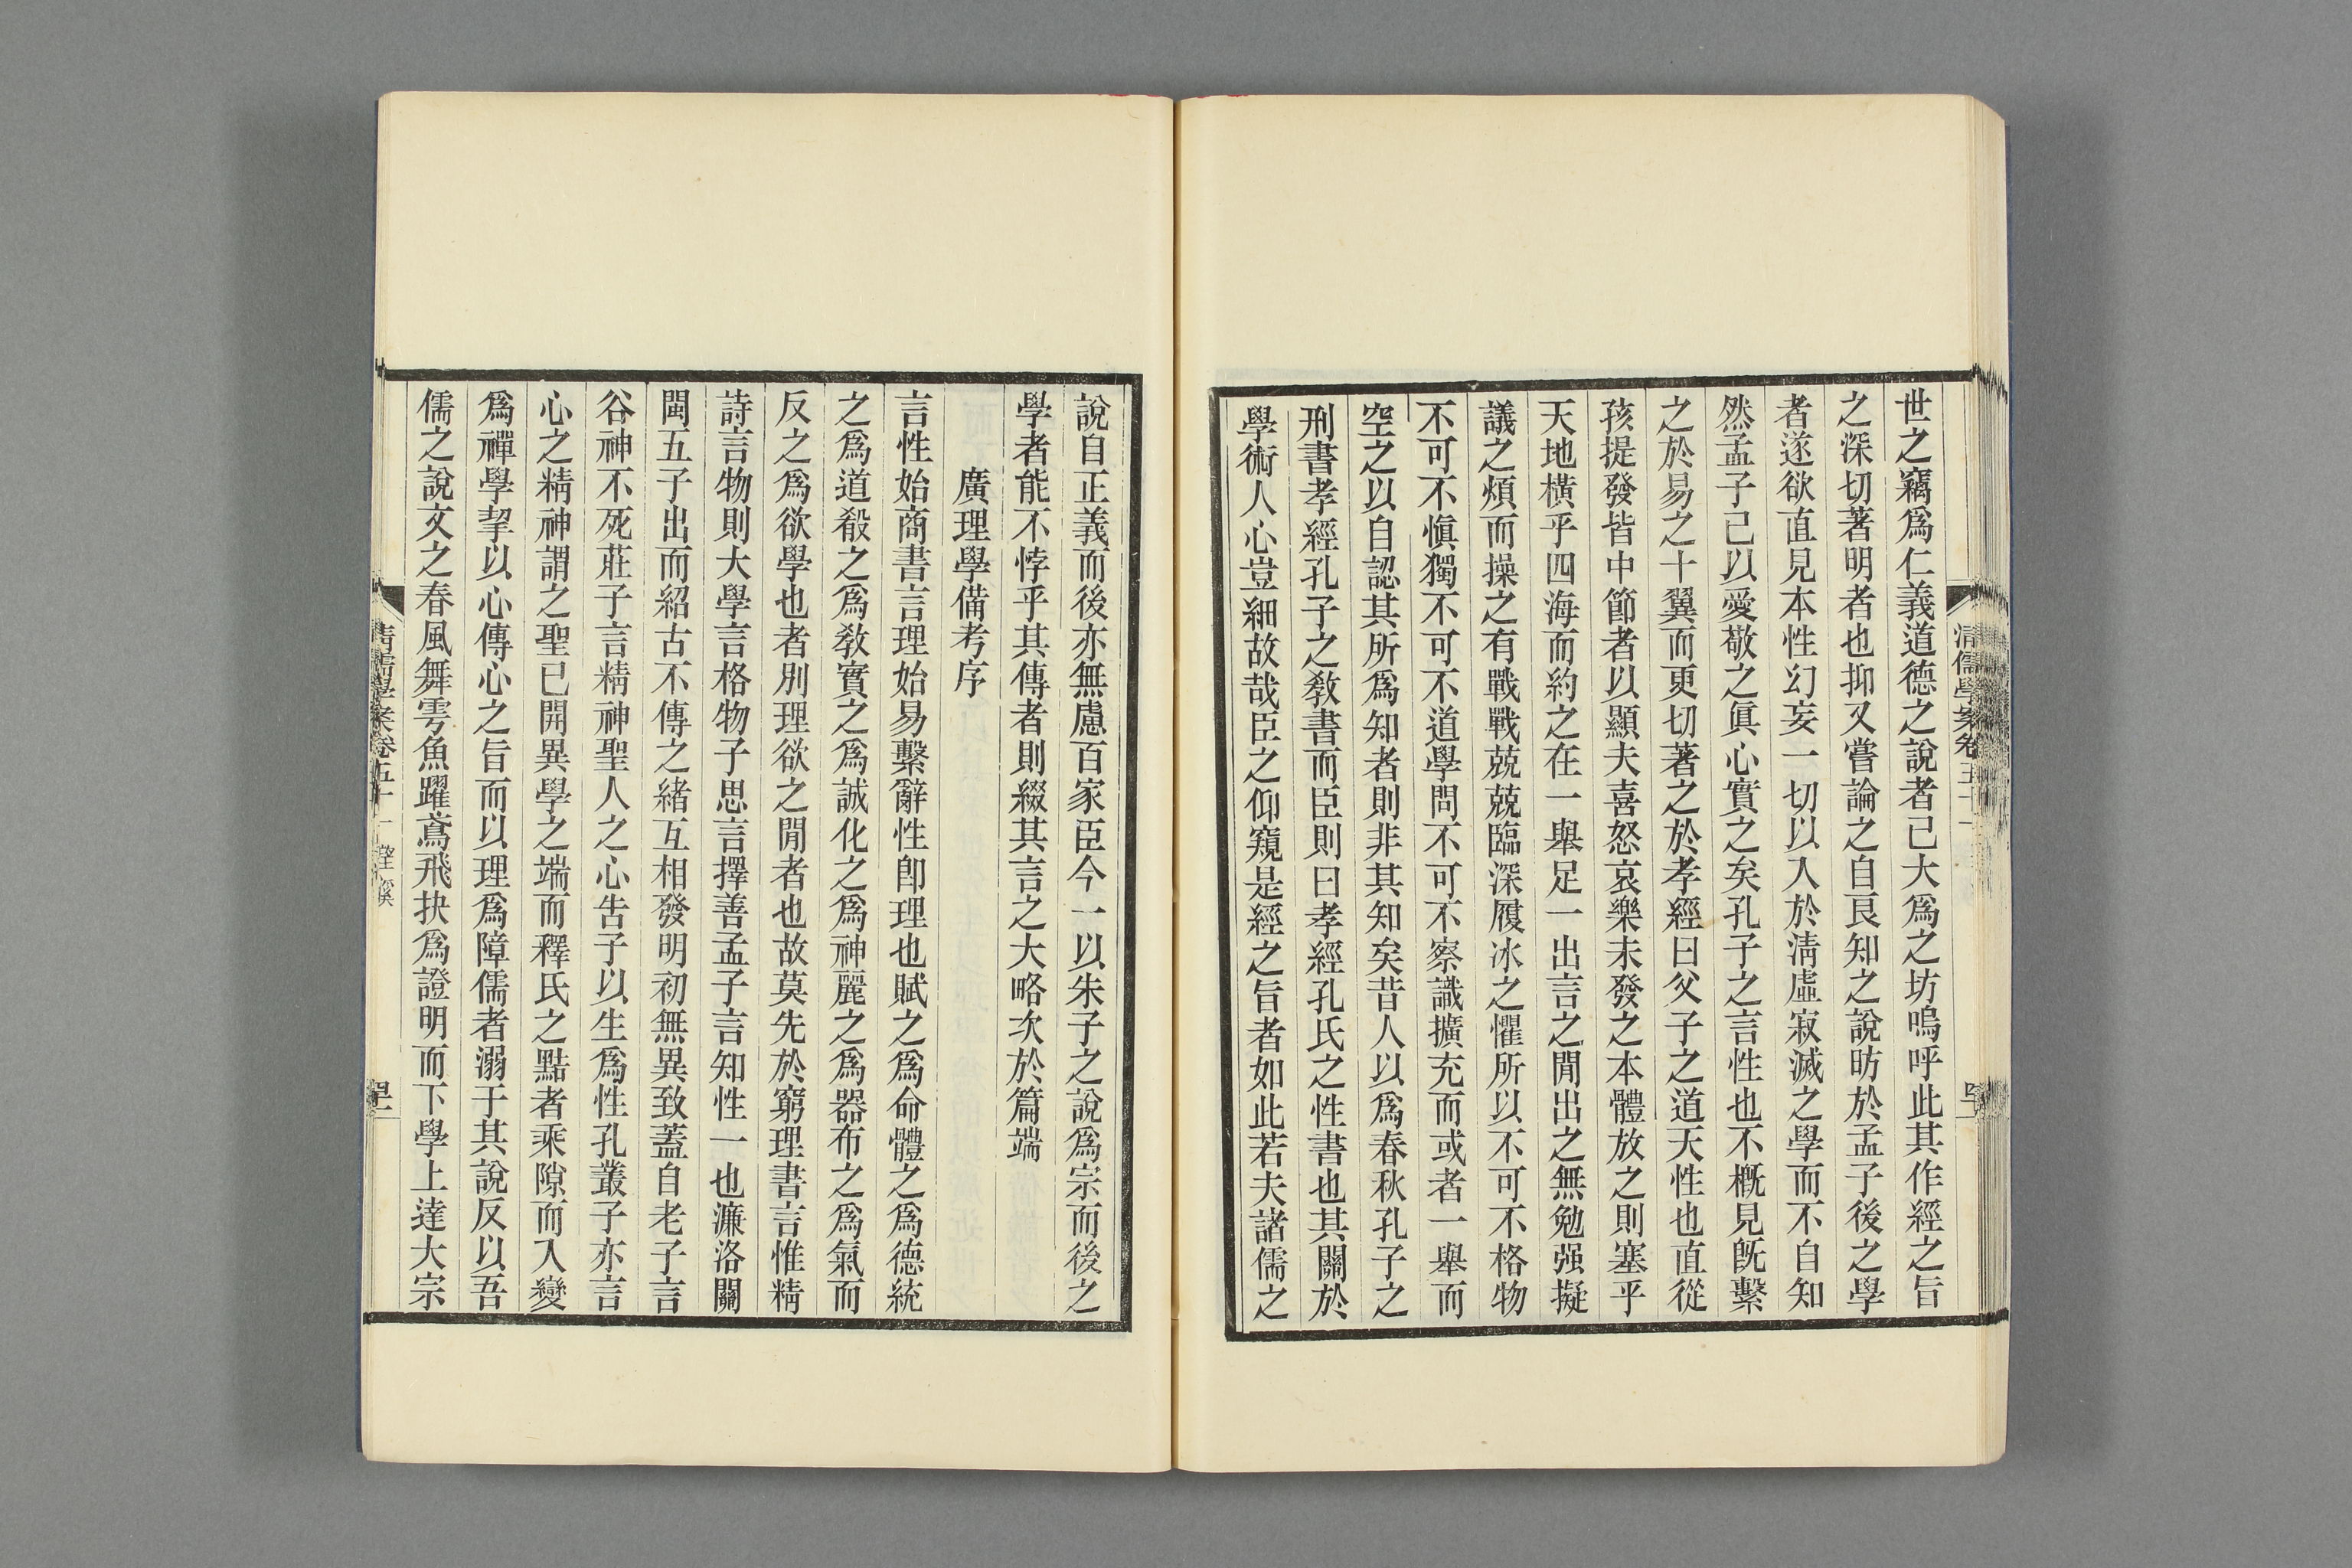 世之竊爲仁義道德之說者已大爲之坊嗚呼此其作經之旨
之深切著明者也抑又嘗論之自良知之說昉於孟子後之學
者遂欲直見本性幻妄一切以入於淸虛寂滅之學而不自知
然孟子已以愛敬之眞心實之矣孔子之言性也不槪見旣繫
之於易之十翼而更切著之於孝經曰父子之道天性也直從
孩提發皆中節者以顯夫喜怒哀樂未發之本體放之則塞乎
天地橫乎四海而約之在一舉足一出言之閒出之無勉强擬
議之煩而操之有戰戰兢兢臨深履冰之懼所以不可不格物
不可不愼獨不可不道學問不可不察識擴充而或者一舉而
空之以自認其所爲知者則非其知矣昔人以爲春秋孔子之
刑書孝經孔子之敎書而臣則曰孝經孔氏之性書也其關於
學術人心豈細故哉臣之仰窺是經之旨者如此若夫諸儒之
說自正義而後亦無慮百家臣今一以朱子之說爲宗而後之
學者能不悖乎其傳者則綴其言之大略次於篇端
廣理學備考序
言性始商書言理始易繫辭性卽理也賦之爲命體之爲德統
之爲道殽之爲敎實之爲誠化之爲神麗之爲器布之爲氣而
反之爲欲學也者別理欲之閒者也故莫先於窮理書言惟精
詩言物則大學言格物子思言擇善孟子言知性一也濂洛關
閩五子出而紹古不傳之緒互相發明初無異致蓋自老子言
谷神不死莊子言精神聖人之心告子以生爲性孔叢子亦言
心之精神謂之聖已開異學之端而釋氏之黠者乘隙而入變
爲禪學挈以心傳心之旨而以理爲障儒者溺于其說反以吾
儒之說文之春風舞雩魚躍鳶飛抉爲證明而下學上達大宗
淸儒學案卷五十一 望溪